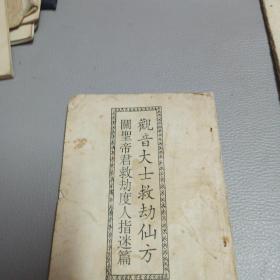 觀音大士救劫仙方
關聖帝君救劫度人指迷篇